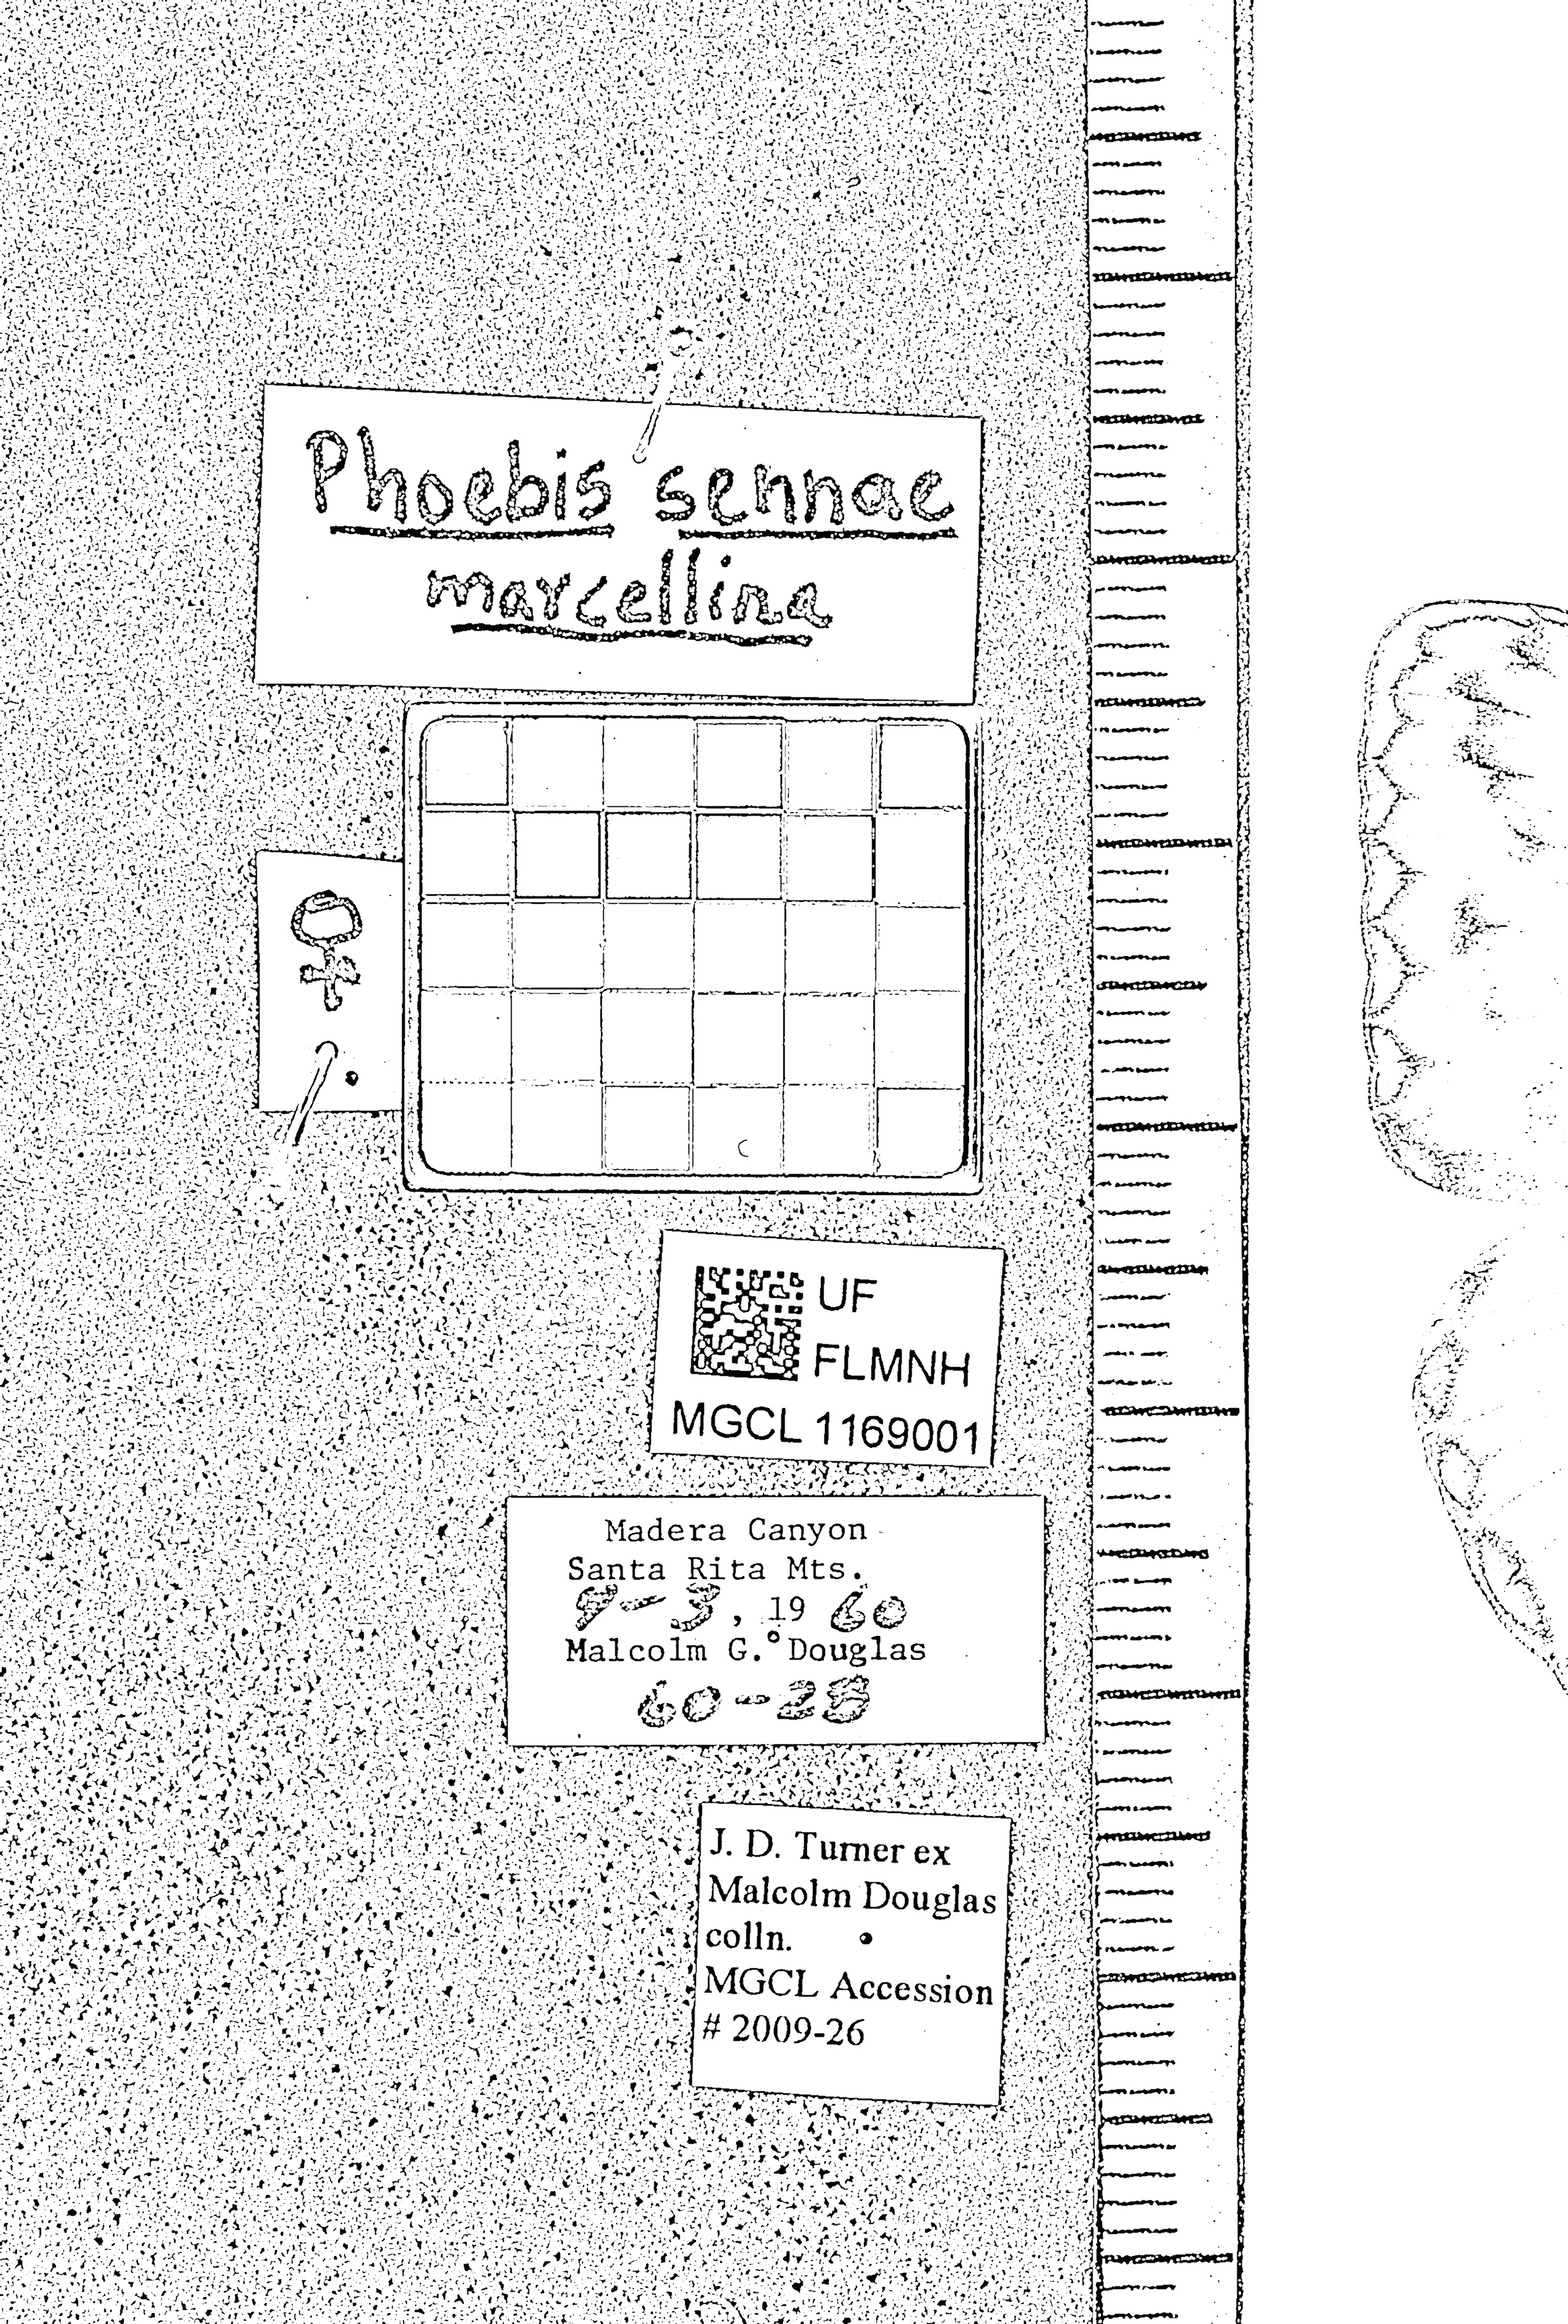 Phoebis sennae
marcellina
♀
UF
FLMNH
MGCL 1169001
Madera Canyon
Santa Rita Mts.
9-3, 19 60
Malcolm G. Douglas
60-28
J. D. Turner ex
Malcolm Douglas
colln.
MGCL Accession
# 2009-26